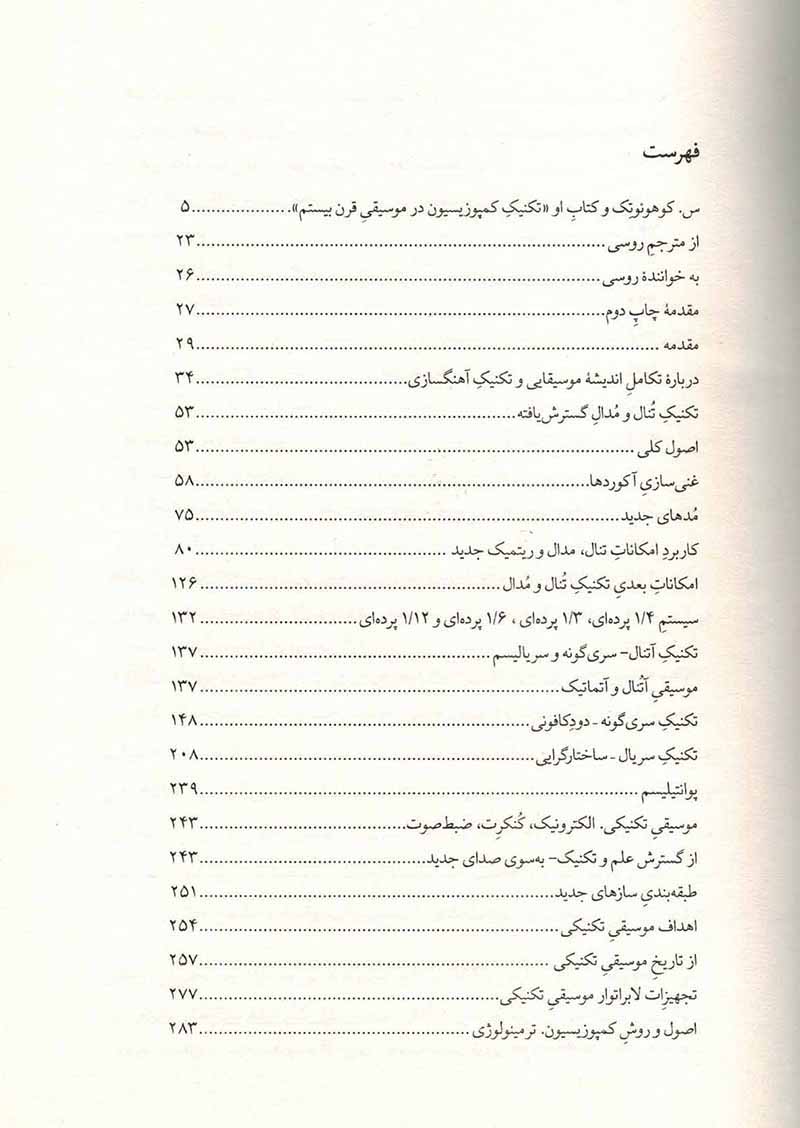 فهرست
س. کوهونوتِک و کتابِ او «تکنیکِ کمپوزیسیون در موسیقیِ قرن بیستم»..................۵
از مترجمِ روسی..................۲۳
به خوانندهٔ روسی..................۲۶
مقدمهٔ چاپِ دوم..................۲۷
مقدمه ..................۲۹
دربارهٔ تکاملِ اندیشهٔ موسیقایی و تکنیکِ آهنگسازی..................۳۴
تکنیکِ تُنال و مُدالِ گسترش‌یافته..................۵۳
اصول کلی..................۵۳
غنی‌سازیِ آکوردها..................۵۸
مُدهای جدید..................۷۵
کاربردِ امکاناتِ تنال، مدال و ریتمیک جدید ..................۸۰
امکاناتِ بعدیِ تکنیکِ تُنال و مُدال..................۱۲۶
سیستمِ ۱/۴ پرده‌ای، ۱/۳ پرده‌ای ، ۱/۶ پرده‌ای و ۱/۱۲ پرده‌ای..................۱۳۲
تکنیکِ آتنال- سری‌گونه و سریالیسم..................۱۳۷
موسیقیِ آتُنال و آتماتیک..................۱۳۷
تکنیکِ سری‌گونه - دودِکافونی..................۱۴۸
تکنیکِ سریال - ساختارگرایی..................۲۰۸
پوانتیلیسم ..................۲۳۹
موسیقیِ تکنیکی. الکترونیک، کُنکرِت، ضبط‌صوت..................۲۴۳
از گسترش علم و تکنیک- به‌سوی صدای جدید..................۲۴۳
طبقه‌بندیِ سازهای جدید..................۲۵۱
اهداف موسیقیِ تکنیکی..................۲۵۴
از تاریخِ موسیقیِ تکنیکی ..................۲۵۷
تجهیزاتِ لابراتوار موسیقیِ تکنیکی..................۲۷۷
اصول و روشِ کمپوزیسیون. ترمینولوژی..................۲۸۳